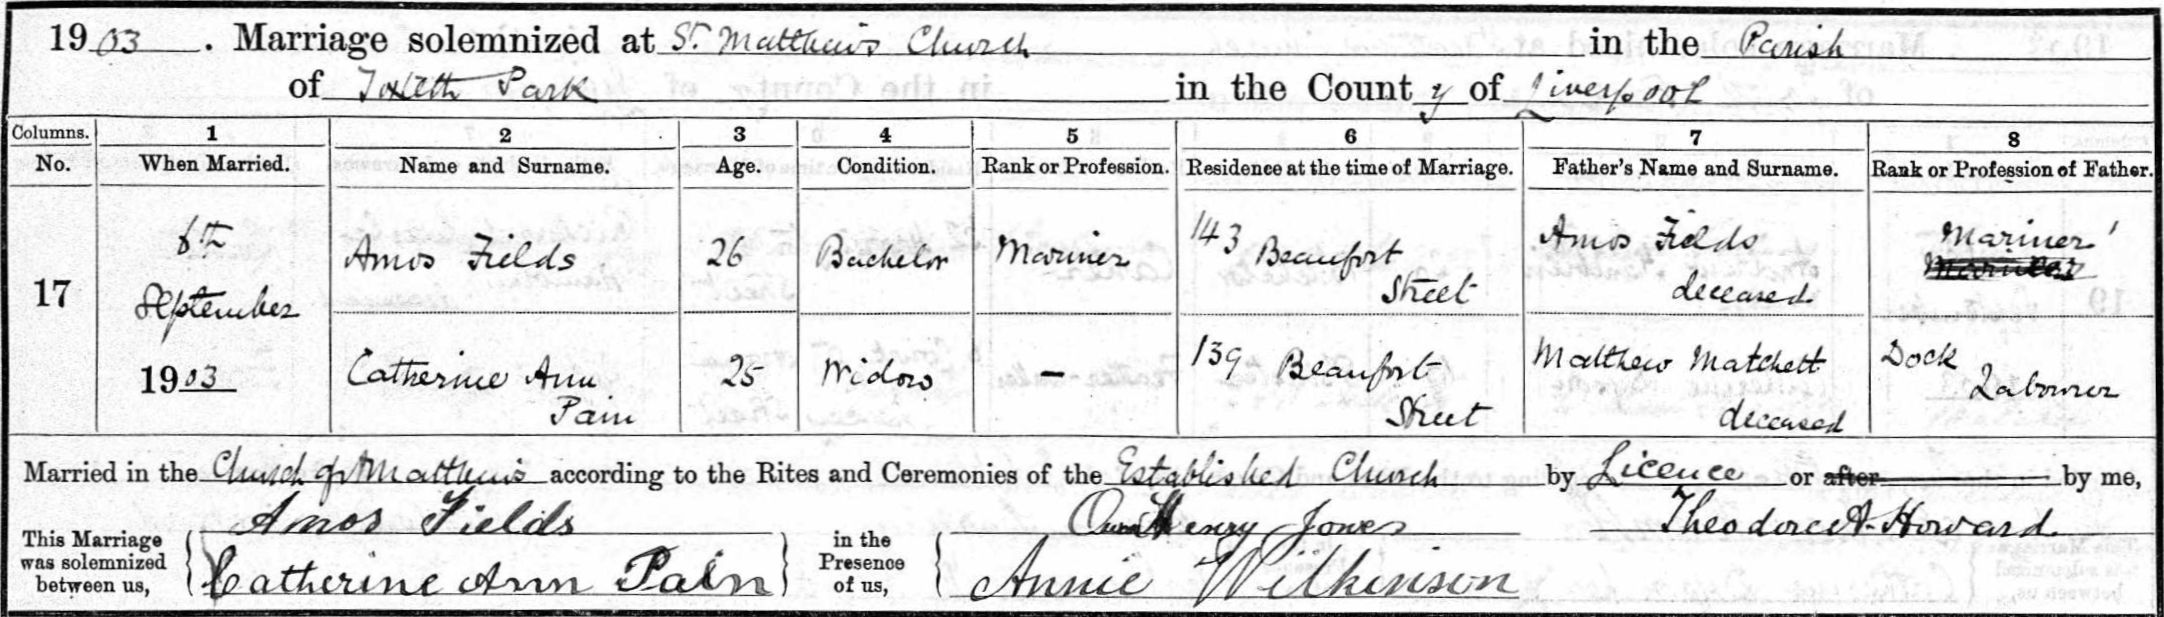 1903. Marriage solemnized at St. Matthew's Church in the Parish
of Toxteth Park in the County of Liverpool
Columns. 1 2 3 4 5 6 7 8
No. When Married. Name and Surname. Age. Condition. Rank or Profession. Residence at the time of Marriage. Father's Name and Surname. Rank or Profession of Father.
17 September 1903 Amos Fields 26 Bachelor Mariner 143 Beaufort Street Amos Fields deceased Mariner
Catherine Ann Pain 25 Widow — 139 Beaufort Street Matthew Matchett deceased Dock Labourer
Married in the Church of St Matthew's according to the Rites and Ceremonies of the Established Church by Licence or after by me,
This Marriage was solemnized between us, Amos Fields in the Presence of us, Henry Jones Theodore A. Howard
Catherine Ann Pain Annie Wilkinson